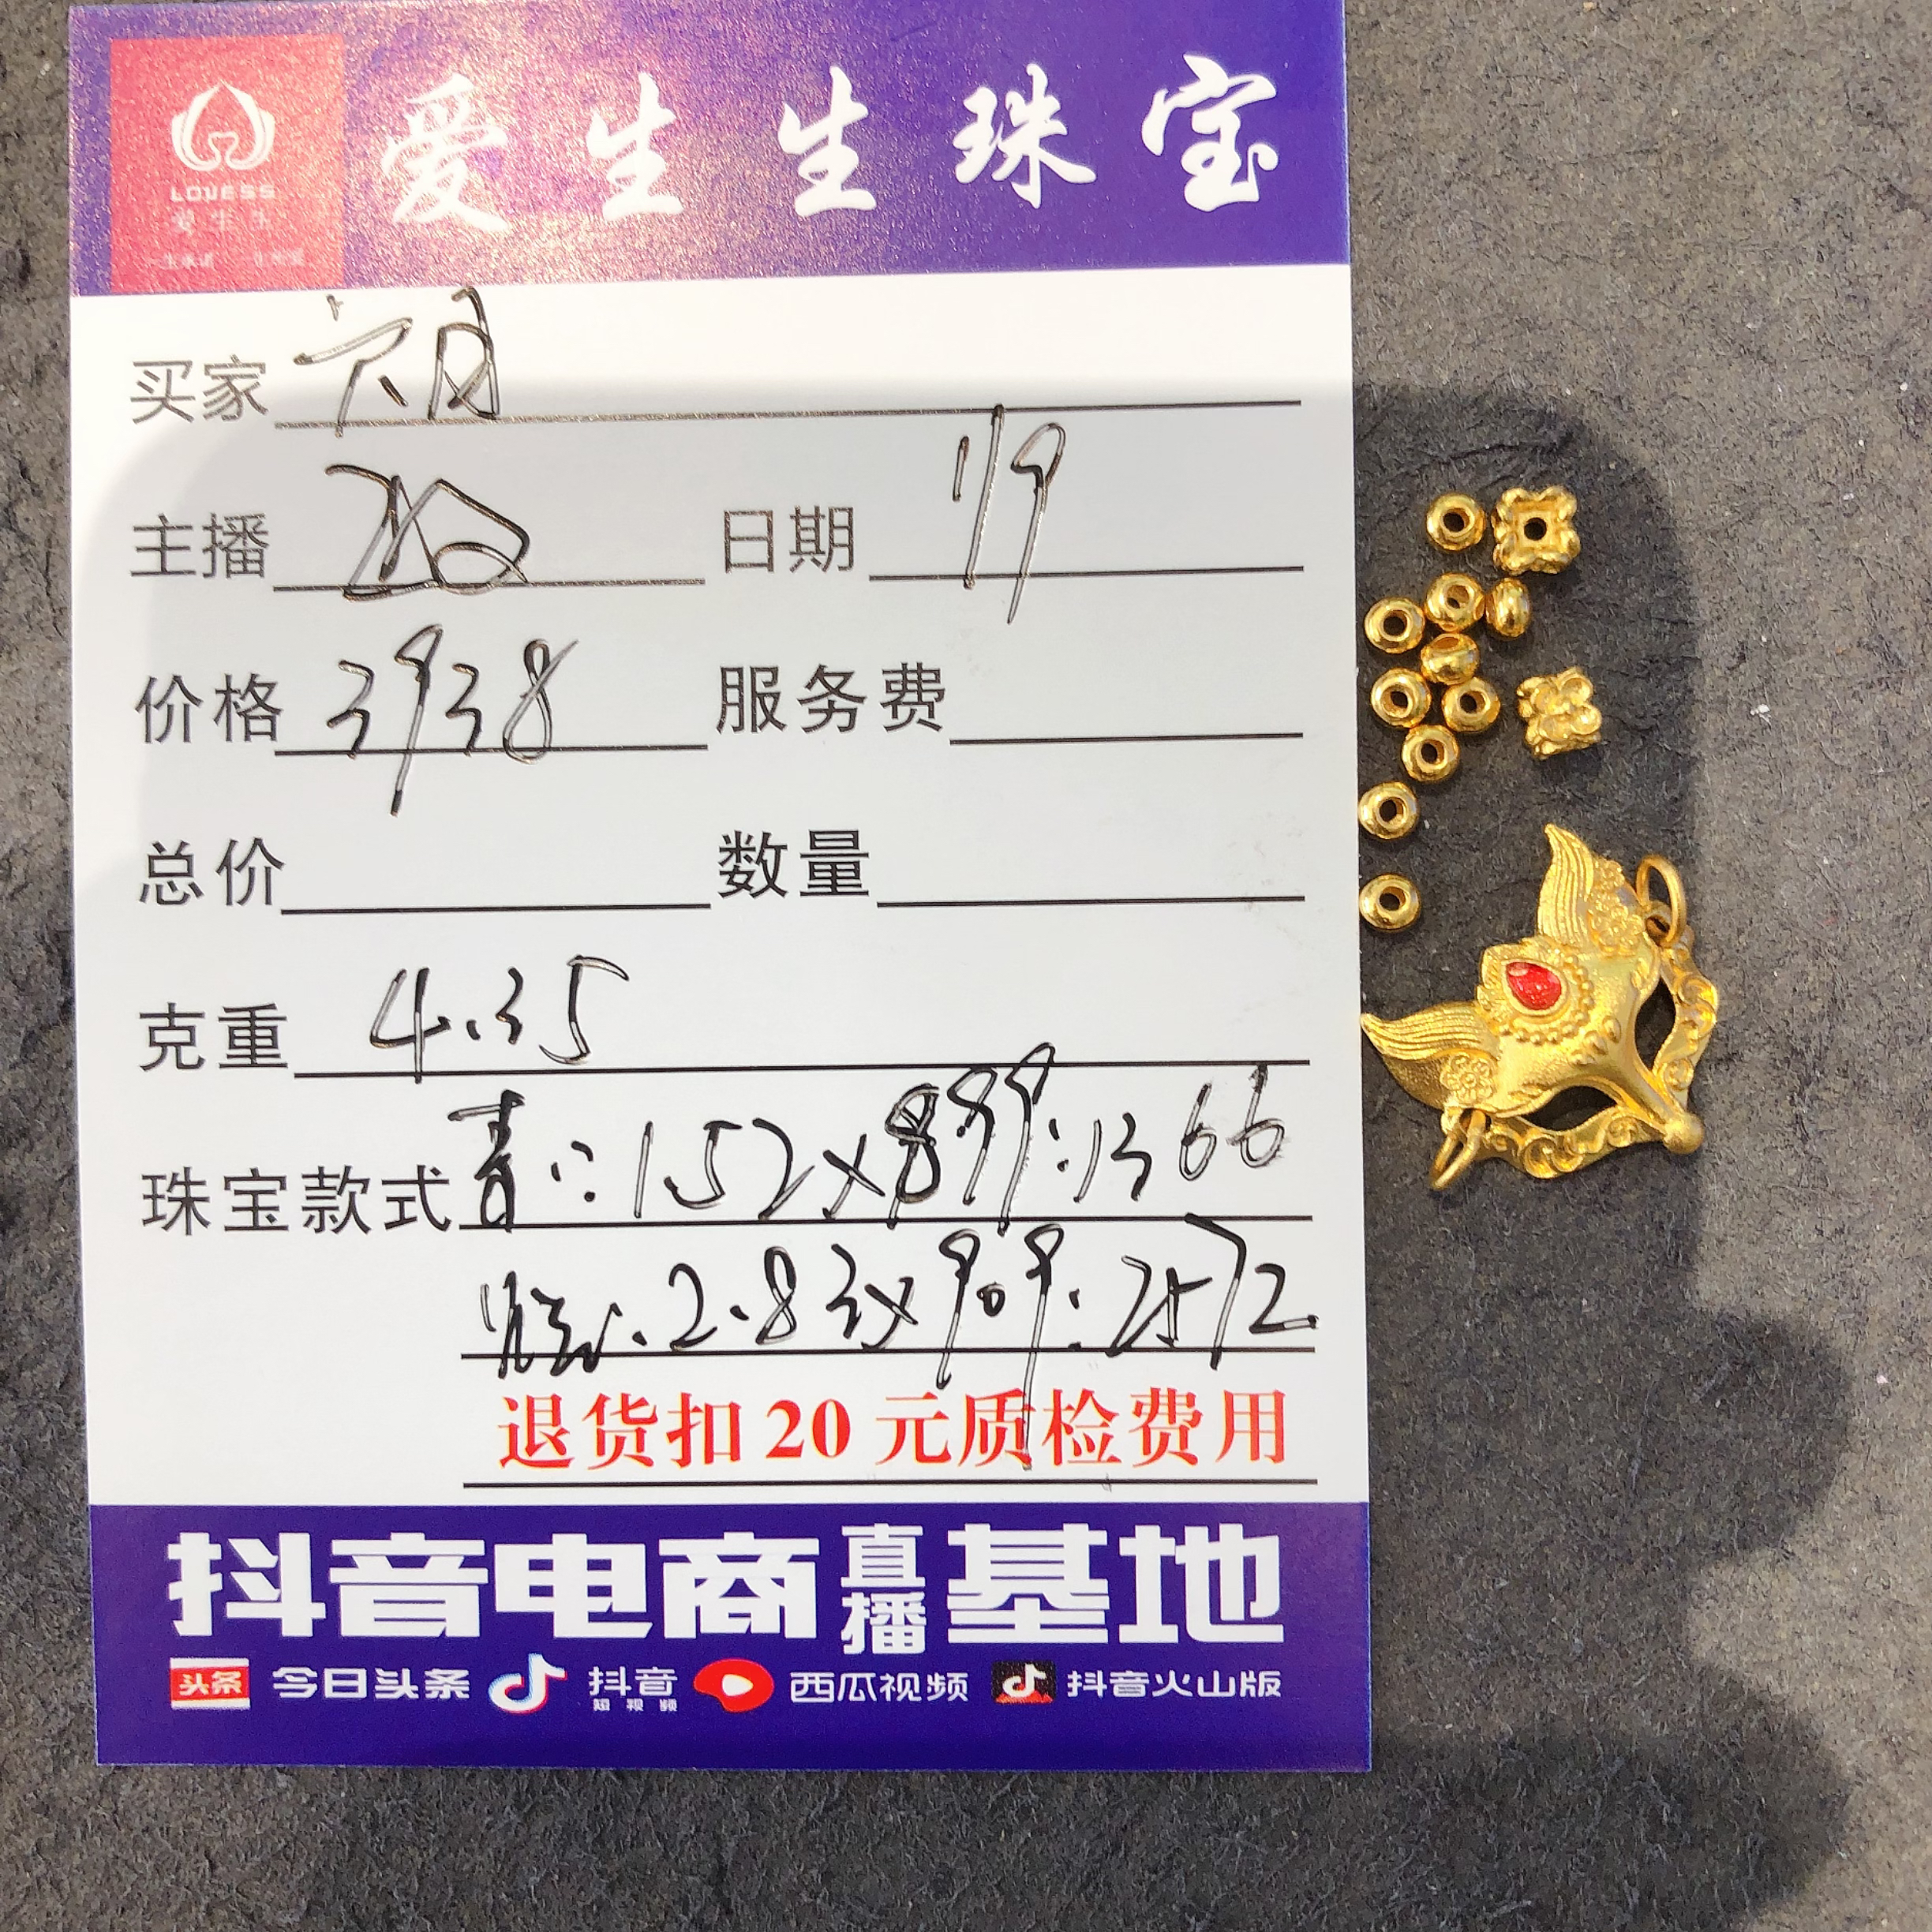 LOVESS
爱生生
爱生生珠宝
买家 六月
主播 日期 1/9
价格 3938 服务费
总价 数量
克重 4.35
珠宝款式 1.52×899:1366
2.83×909:2572
退货扣20元质检费用
抖音电商直播基地
头条 今日头条 抖音短视频 西瓜视频 抖音火山版